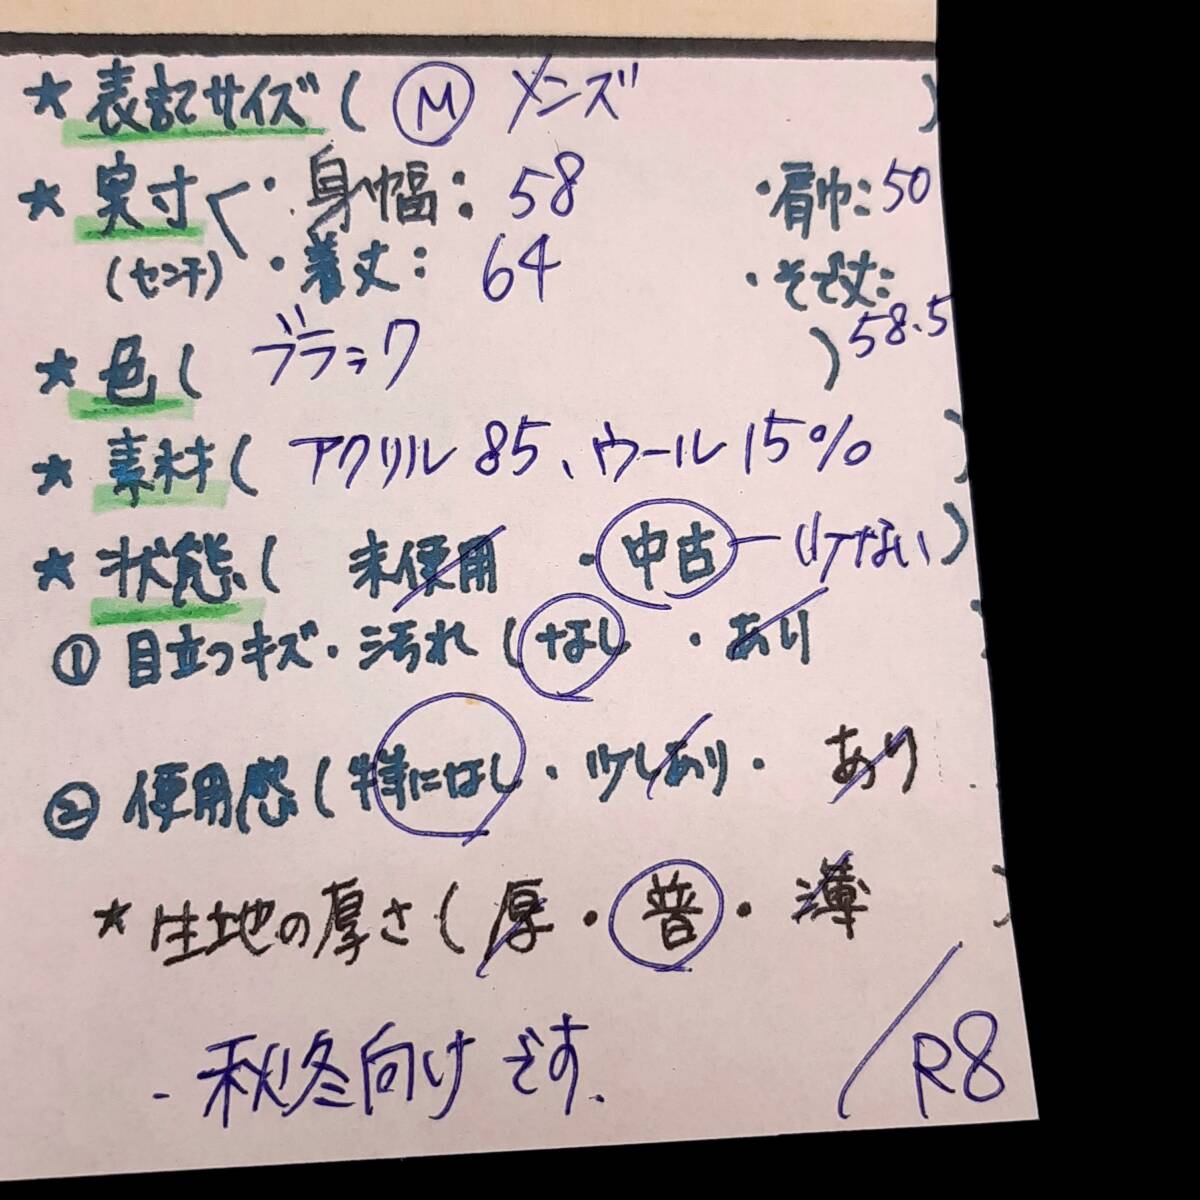 ★ 表記サイズ ( M メンズ )
★ 実寸く ・身幅: 58 ・肩巾: 50
(センチ) ・着丈: 64 ・そで丈: 58.5
★ 色 ( ブラック )
★ 素材 ( アクリル 85、ウール 15% )
★ 状態 ( 未使用 ・ 中古 ー )
① 目立つキズ・汚れ ( なし ・ あり )
② 使用感 ( 特になし ・ 少しあり ・ あり
★ 生地の厚さ ( 厚 ・ 普 ・ 薄 )
- 秋冬向けです. / R8